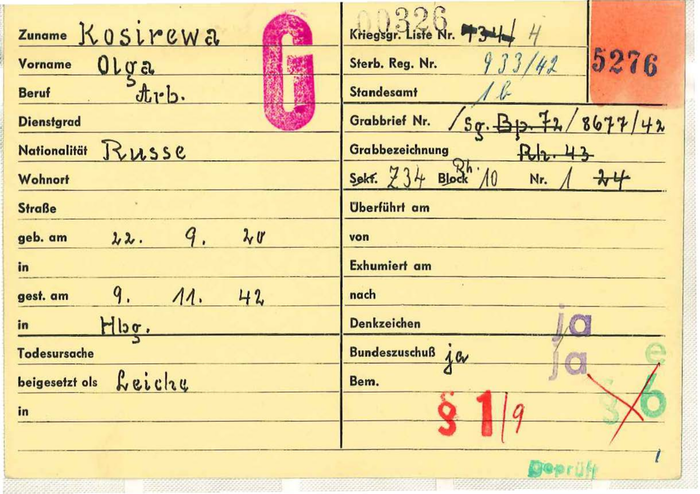 Zuname Kosirewa
Vorname Olga
Beruf Arb.
Dienstgrad
Nationalität Russe
Wohnort
Straße
geb. am 22. 9. 20
in
gest. am 9. 11. 42
in Hbg.
Todesursache
beigesetzt als Leiche
in
G
00326
Kriegsgr. Liste Nr. 4
5276
Sterb. Reg. Nr. 933/42
Standesamt 1b
Grabbrief Nr. / Sg. Bp. 72 / 8677/42
Grabbezeichnung Rh. 43
Sekt. Z34 Block Rh. 10 Nr. 1 24
Überführt am
von
Exhumiert am
nach
Denkzeichen ja
Bundeszuschuß ja ja e
Bem.
§ 1/9 § 6
geprüft